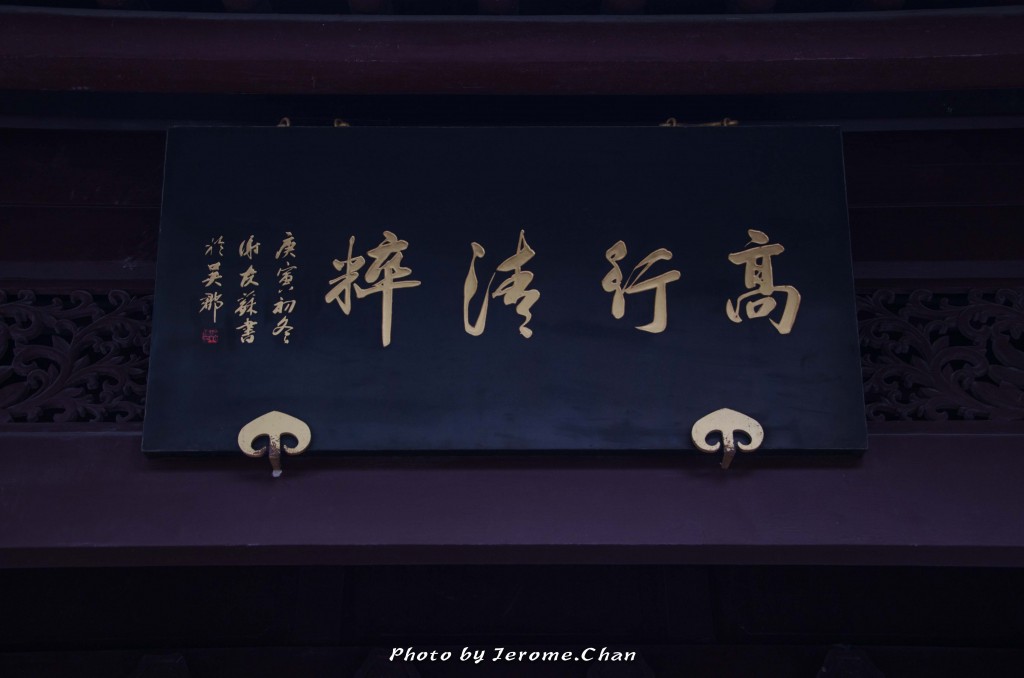 高行清粹
庚寅初冬
谢友苏書
於吴郡
Photo by Jerome.Chan